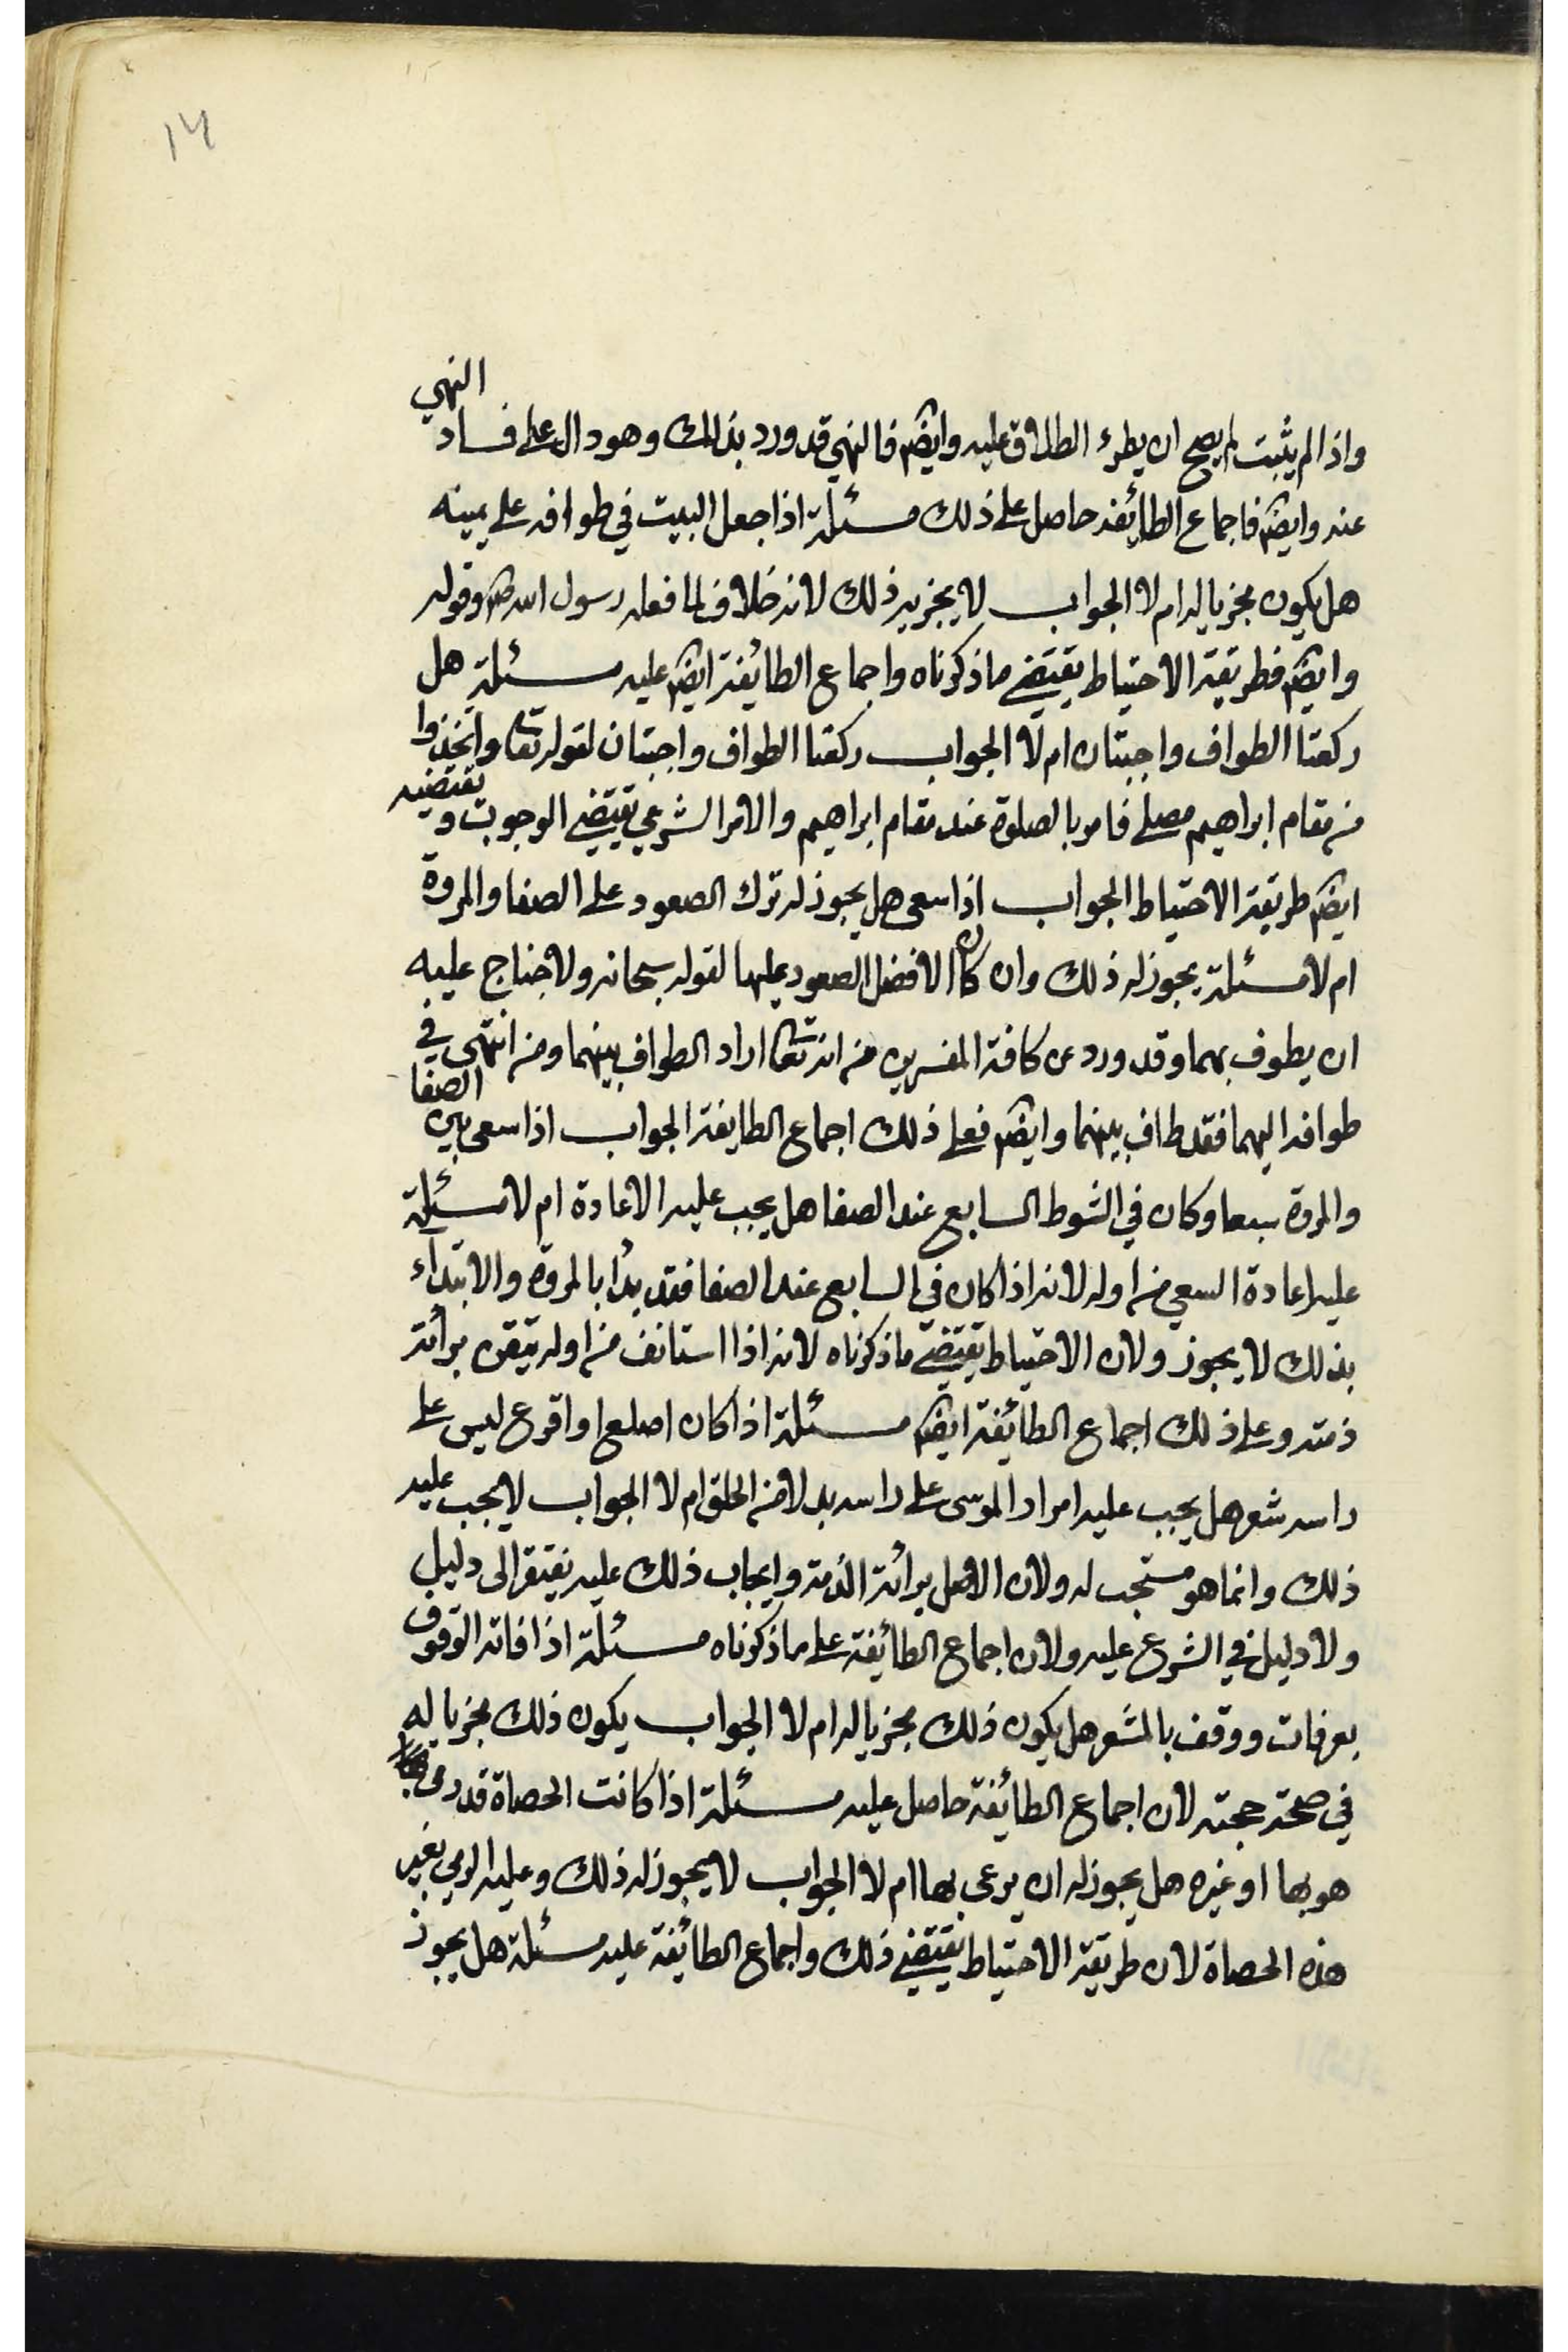 ١٣
واذا لم يثبت لم يصح ان يطرء الطلاق عليه وايضا فالنهي قد ورد بذلك وهو دال على فساد النهي
عنه وايضا فاجماع الطائفة حاصل على ذلك مسئلة اذا جعل البيت في طوافه على يمينه
هل يكون مجزيا له ام لا الجواب لا يجزيه ذلك لانه خلاف لما فعله رسول الله ص وقوله
وايضا فطريقة الاحتياط يقتضي ما ذكرناه واجماع الطائفة ايضا عليه مسئلة هل
ركعتا الطواف واجبتان ام لا الجواب ركعتا الطواف واجبتان لقوله تعا واتخذوا
من مقام ابراهيم مصلى فامر بالصلوة عند مقام ابراهيم والامر الشرعي يقتضي الوجوب و يقتضيه
ايضا طريقة الاحتياط الجواب اذا سعى هل يجوز له ترك الصعود على الصفا والمروة
ام لا مسئلة يجوز له ذلك وان كان الافضل الصعود عليها لقوله سبحانه ولا جناح عليه
ان يطوف بهما وقد ورد عن كافة المفسرين من انه تعا اراد الطواف بينهما ومن انتهى في
طوافه اليهما فقد طاف بينهما وايضا فعلى ذلك اجماع الطايفة الجواب اذا سعى بين الصفا
والمروة سبعا وكان في الشوط السابع عند الصفا هل يجب عليه الاعادة ام لا مسئلة
عليه اعادة السعي من اوله لانه اذا كان في السابع عند الصفا فقد بدأ بالمروة والابتداء
بذلك لا يجوز ولان الاحتياط يقتضي ما ذكرناه لانه اذا استانف من اوله تيقن برائة
ذمته وعلى ذلك اجماع الطائفة ايضا مسئلة اذا كان اصلع او اقرع ليس على
راسه شعر هل يجب عليه امرار الموسى على راسه بدلا من الحلق ام لا الجواب لا يجب عليه
ذلك وانما هو مستحب له ولان الاصل برائة الذمة وايجاب ذلك عليه يفتقر الى دليل
ولا دليل في الشرع عليه ولان اجماع الطائفة على ما ذكرناه مسئلة اذا فاته الوقوف
بعرفات ووقف بالمشعر هل يكون ذلك مجزيا له ام لا الجواب يكون ذلك مجزيا له
في صحة حجته لان اجماع الطائفة حاصل عليه مسئلة اذا كانت الحصاة قد رمى
هو بها او غيره هل يجوز له ان يرمى بها ام لا الجواب لا يجوز له ذلك وعليه الرمي بغير
هذه الحصاة لان طريقة الاحتياط يقتضي ذلك واجماع الطائفة عليه مسئلة هل يجوز